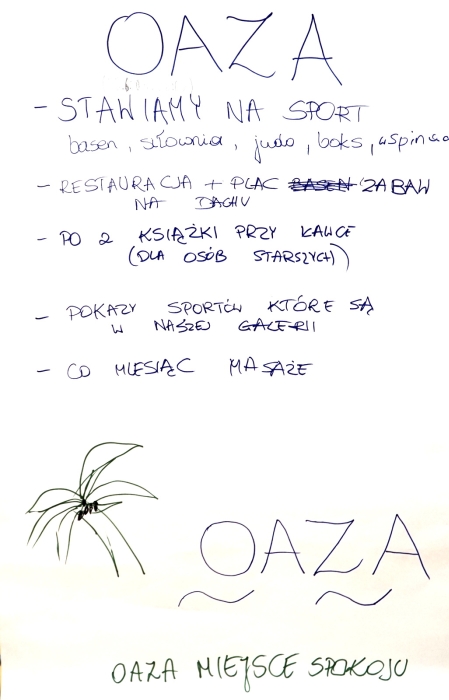 OAZA
- STAWIAMY NA SPORT
basen, siłownia, judo, boks,
- RESTAURACJA + PLAC BASEN ZABAW
NA DACHU
- PO 2 KSIĄŻKI PRZY KAWCE
(DLA OSÓB STARSZYCH)
- POKAZY SPORTÓW KTÓRE SĄ
W NASZEJ GALERII
- CO MIESIĄC MASAŻE
OAZA
OAZA MIEJSCE SPOKOJU